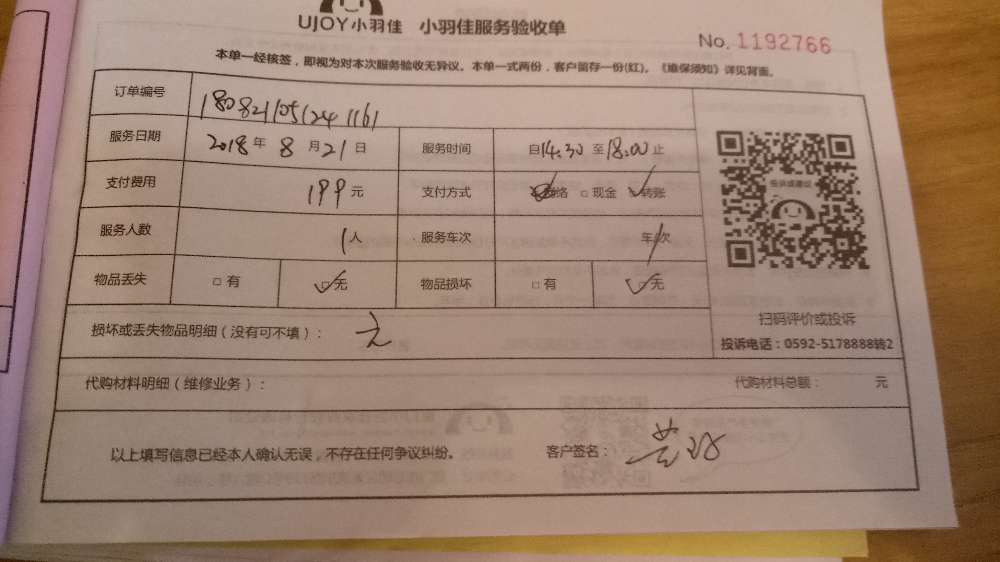 UJOY小羽佳 小羽佳服务验收单
No. 1192766
本单一经核签，即视为对本次服务验收无异议。本单一式两份，客户留存一份(红)。《维保须知》详见背面。
订单编号 180821105124 1161
服务日期 2018年 8月21日 服务时间 自14:30至18:00止
支付费用 199元 支付方式 网络 □现金 转账
服务人数 1人 服务车次 车/次
物品丢失 □有 ☑无 物品损坏 □有 ☑无
投诉或建议
扫码评价或投诉
投诉电话：0592-5178888转2
损坏或丢失物品明细（没有可不填）： 无
代购材料明细（维修业务）： 代购材料总额： 元
以上填写信息已经本人确认无误，不存在任何争议纠纷。 客户签名：